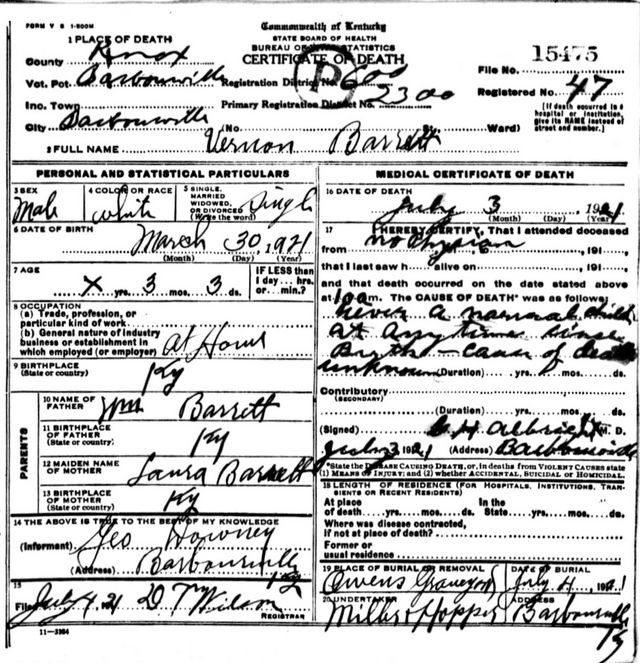 FORM V S 1-500M
Commonwealth of Kentucky
STATE BOARD OF HEALTH
BUREAU OF STATISTICS
CERTIFICATE OF DEATH
1 PLACE OF DEATH
County Knox
Vot. Pct. Barbourville Registration District No. 600
Inc. Town Primary Registration District No. 2300
City Barbourville (No. St. Ward)
File No. 15475
Registered No. 47
[If death occurred in a hospital or institution, give its NAME instead of street and number.]
2 FULL NAME Vernon Barrett
PERSONAL AND STATISTICAL PARTICULARS
3 SEX Male
4 COLOR OR RACE White
5 SINGLE, MARRIED WIDOWED, OR DIVORCED (Write the word) Single
6 DATE OF BIRTH March 30, 1921
(Month) (Day) (Year)
7 AGE x yrs. 3 mos. 3 ds.
IF LESS than 1 day... hrs. or... min.?
8 OCCUPATION
(a) Trade, profession, or particular kind of work
(b) General nature of industry business or establishment in which employed (or employer) At Home
9 BIRTHPLACE (State or country) Ky
PARENTS
10 NAME OF FATHER Wm Barrett
11 BIRTHPLACE OF FATHER (State or country) Ky
12 MAIDEN NAME OF MOTHER Laura Barrett
13 BIRTHPLACE OF MOTHER (State or country) Ky
14 THE ABOVE IS TRUE TO THE BEST OF MY KNOWLEDGE
(Informant) Geo
(Address) Barbourville Ky
15
Filed July 4, 21 D T Wilson
REGISTRAR
11-3984
MEDICAL CERTIFICATE OF DEATH
16 DATE OF DEATH July 3 1921
(Month) (Day) (Year)
17 I HEREBY CERTIFY, That I attended deceased
from no Physician, 191 , to , 191
that I last saw h alive on , 191
and that death occurred on the date stated above
at m. The CAUSE OF DEATH* was as follows:
never a normal child
at any time since
Byrth - cause of death
unknown (Duration) yrs. mos. ds.
Contributory
(SECONDARY)
(Duration) yrs. mos. ds.
(Signed) Albright M. D.
July 3 1921 (Address) Barbourville
*State the DISEASE CAUSING DEATH, or, in deaths from VIOLENT CAUSES state (1) MEANS OF INJURY; and (2) whether ACCIDENTAL, SUICIDAL OR HOMICIDAL.
18 LENGTH OF RESIDENCE (FOR HOSPITALS, INSTITUTIONS, TRANSIENTS OR RECENT RESIDENTS)
At place of death yrs. mos. ds. In the State yrs. mos. ds.
Where was disease contracted, if not at place of death?
Former or usual residence
19 PLACE OF BURIAL OR REMOVAL Owens Graveyard
DATE OF BURIAL July 4, 1921
20 UNDERTAKER Miller Hopper
ADDRESS Barbourville Ky